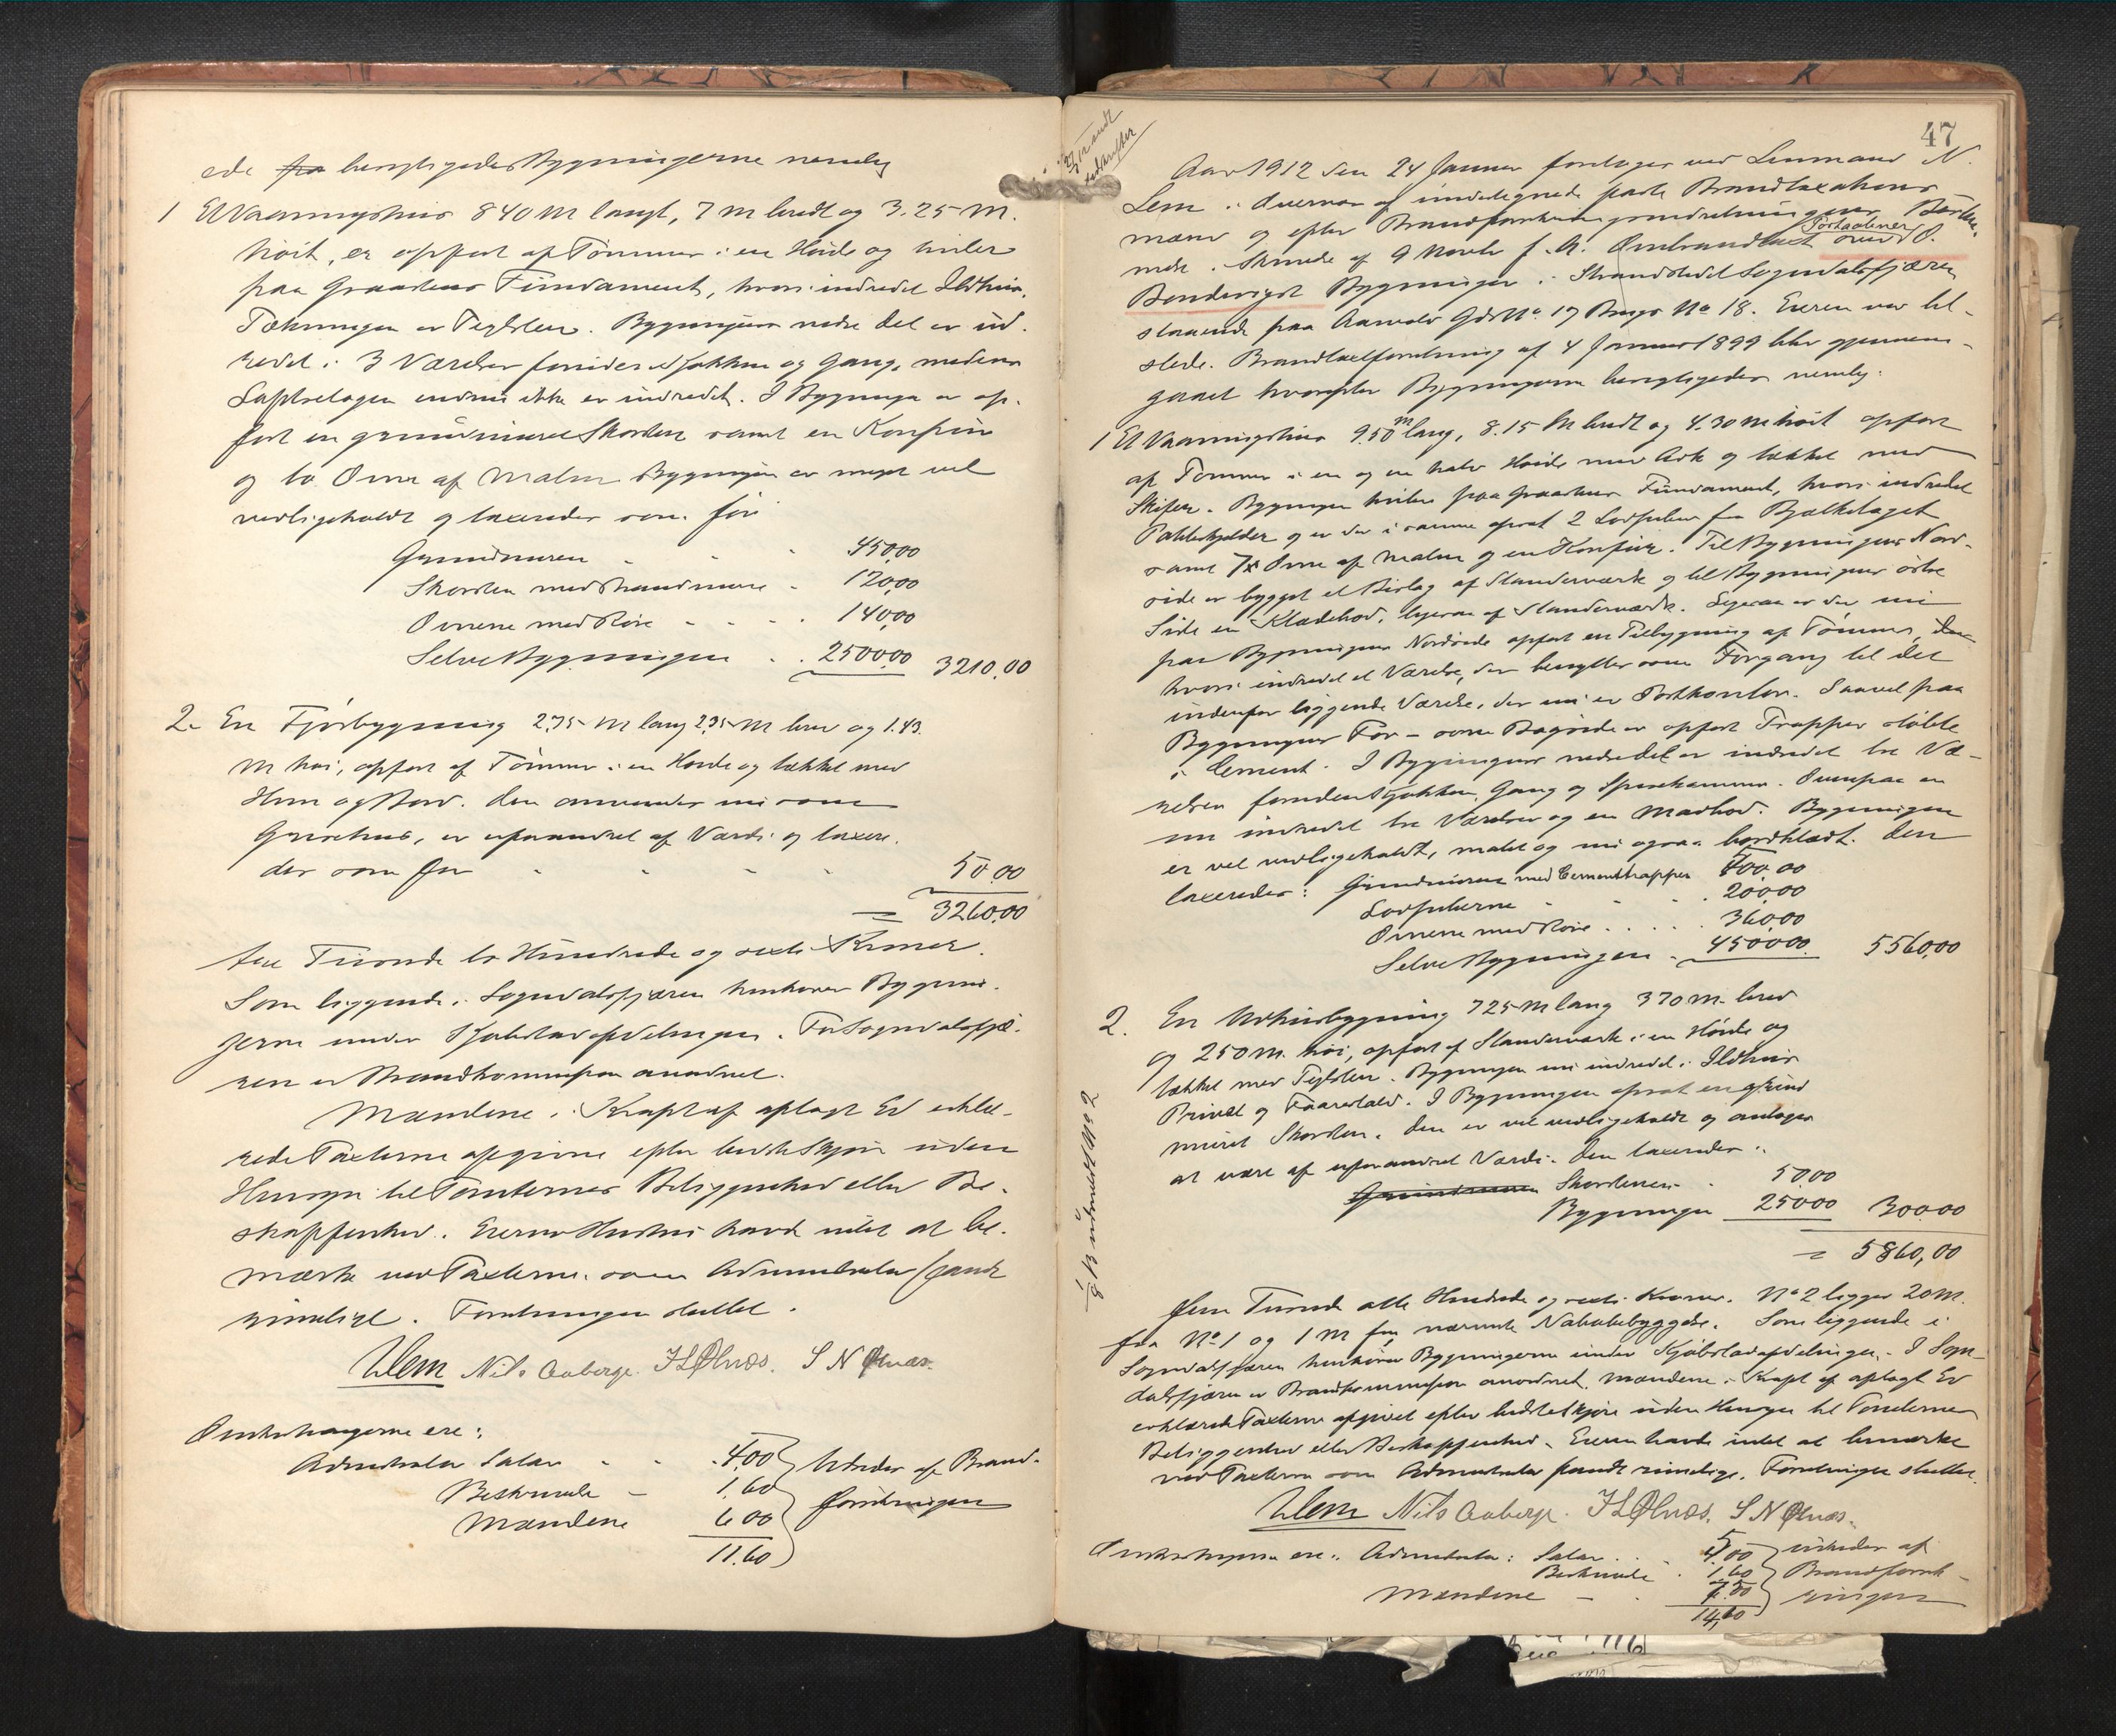 ede fra besigtigedes Bygningerne nemlig
1 Et Vaaningshus 840 M langt, 7 M bredt og 3.25 M.
høit, er opført af Tømmer i en Høide og hviler
paa Graastens Fundament, hvori indredet Ildhus.
Tækningen er Teglsten. Bygningens nedre Del er ind-
redet i 3 Værelser foruden Kjøkken og Gang, medens
Loftsetagen endnu ikke er indredet. I Bygningen er op-
ført en grundmuret Skorsten samt en Komfur
og to Ovne af Malm Bygningen er meget vel
vedligeholdt og taxeredes som før
Grundmuren - - - 450,00
Skorsten med Brandmure - 120,00
Ovnene med Rør - - - 140,00
Selve Bygningen . . 2500,00 3210,00
2. En Fjøsbygning 2,75 M lang 2,35 M bred og 1.43.
M høi, opført af Tømmer i en Høide og tækket med
Hun og Bord. Den anvendes nu som
Grisehus, er uforandret af Værdi og taxere-
des som før - - - - 50,00
= 3260,00
tre Tusinde to Hundrede og seksti Kroner.
Som liggende i Sogndalsfjæren henhører Bygnin-
gerne under Kjøbstadafdelingen. For Sogndalsfjæ-
ren er Brandkommission anordnet.
Mændene i Kraft af aflagt Ed erklæ-
rede Taxterne afgivne efter bedste Skjøn uden
Hensyn til Tomternes Beliggenhed eller Be-
skaffenhed. Eierens Hustru havde intet at be-
mærke ved Taxterne som Administrator fandt
rimeligt. Forretningen sluttet.
NLem Nils Aaberge. I L Ølnæs. S N Ølnæs.
Omkostningerne ere:
Administrator Salær - - . 4,00 } Udredes af Brand-
Beskrivelse - 1.60 forsikringen
Mændene 6 00
11.60
47
Aar 1912 den 24 Januar foretoges ved Lensmand N.
Lem i Overvær af undertegnede faste Brandtaxations-
mænd og efter Brandforsikringsindretningens Bestem-
melse i Skrivelse af 9 Novbr f. A. Ombrandtaxt over O.
Postaabner
Bondevigst Bygninger i Strandstedet Sogndalsfjæren
staaende paa Aarvolv Gds No. 17 Brugs No 18. Eieren var til-
stede. Brandtaxtforretning af 4 Januar 1899 blev gjennem-
gaaet hvorefter Bygningerne besigtigedes nemlig:
1 Et Vaaningshus 9.50 M lang, 8.15 M bredt og 4.30 M høit opført
af Tømmer i en og en halv Høide med Ark og tækket med
Skifer. Bygningen hviler paa Graastens Fundament, hvori indredet
Potetkjelder og er der i samme opsat 2 Lodpiber fra Bjælkelaget
samt 7 Ovne af Malm og en Komfur. Til Bygningens Nord-
side er bygget et Bislag af Standerværk og til Bygningens østre
Side en Klædebod, ligesaa af Standerværk. Ligesaa er der nu
paa Bygningens Nordside opført en Tilbygning af Tømmer, der
hvori indredet et Værelse, der benyttes som Forgang til det
indenfor liggende Værelse, der nu er Postkontor. Saavel paa
Bygningens For- som Bagside er opført Trapper støbte
i Cement. I Bygningens nedre Del er indredet tre Væ-
relser foruden Kjøkken, Gang og Spisekammer. Ovenpaa er
nu indredet tre Værelser og en Madbod. Bygningen
er vel vedligeholdt, malet og nu ogsaa bordklædt. Den
taxeredes: Grundmuren med Cementtrapper 500,00
Lodpiberne - - - . 200,00
Ovnene med Rør . . . . . 360,00
Selve Bygningen . 4500,00 5560,00
2. En Udhusbygning 725 M lang 370 M. bred
og 250 M. høi, opført af Standerværk i en Høide og
tækket med Teglsten. Bygningen nu indredet i Ildhus
Privet og Faarestald. I Bygningen opsat en grund
muret Skorsten. Den er vel vedligeholdt og antages
at være af uforandret Værdi. Den taxeredes:
Grundmuren Skorstenen . 50,00
Bygningen 250,00 300,00
= 5860,00
fem Tusinde otte Hundrede og seksti Kroner. No 2 ligger 20 M.
fra No 1 og 1 M fra nærmeste Nabobebyggelse. Som liggende i
Sogndalsfjæren henhører Bygningerne under Kjøbstadafdelingen. I Sogn-
dalsfjæren er Brandkommission anordnet. Mændene i Kraft af aflagt Ed
erklærede Taxterne afgivet efter bedste Skjøn uden Hensyn til Tomternes
Beliggenhed eller Beskaffenhed. Eieren havde intet at bemærke
ved Taxterne som Administrator fandt rimelige. Forretningen sluttet.
NLem Nils Aaberge. I L Ølnæs. S N Ølnæs.
Omkostningerne ere: Administrator: Salær . . 5,00 } udredes af
Beskrivelse . 1,60 Brandforsik-
Mændene - . 7.50 ringen
14,10